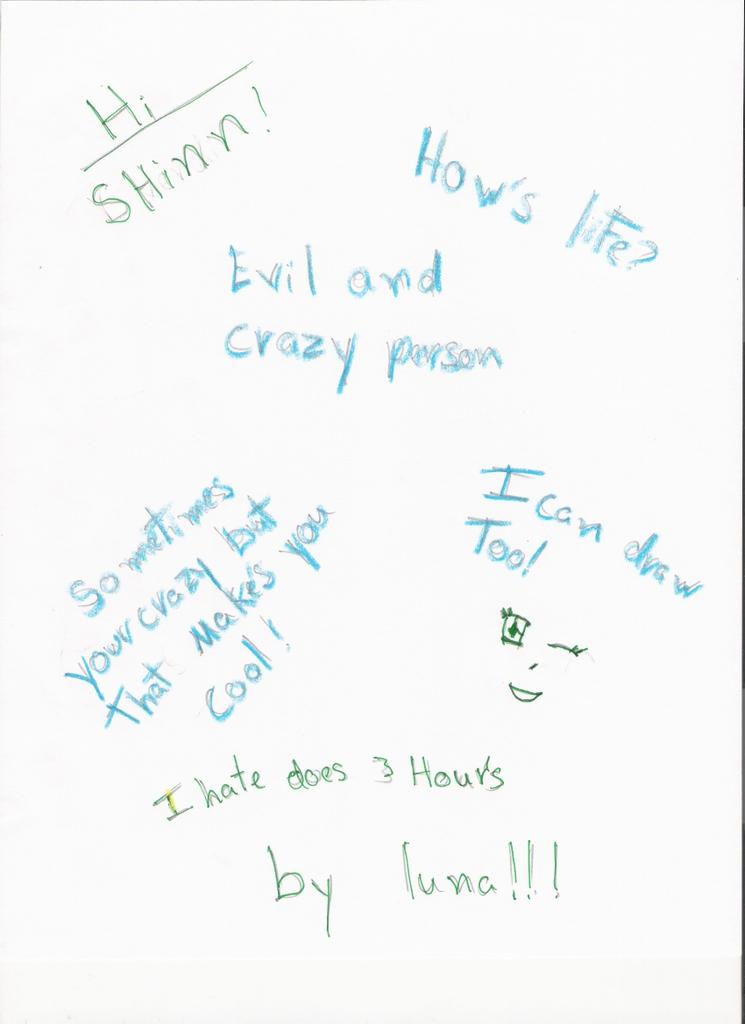 Hi
SHinn!
How's life?
Evil and
crazy person
Sometimes
your crazy but
that Makes you
cool!
I can draw
Too!
I hate does 3 Hour's
by luna!!!